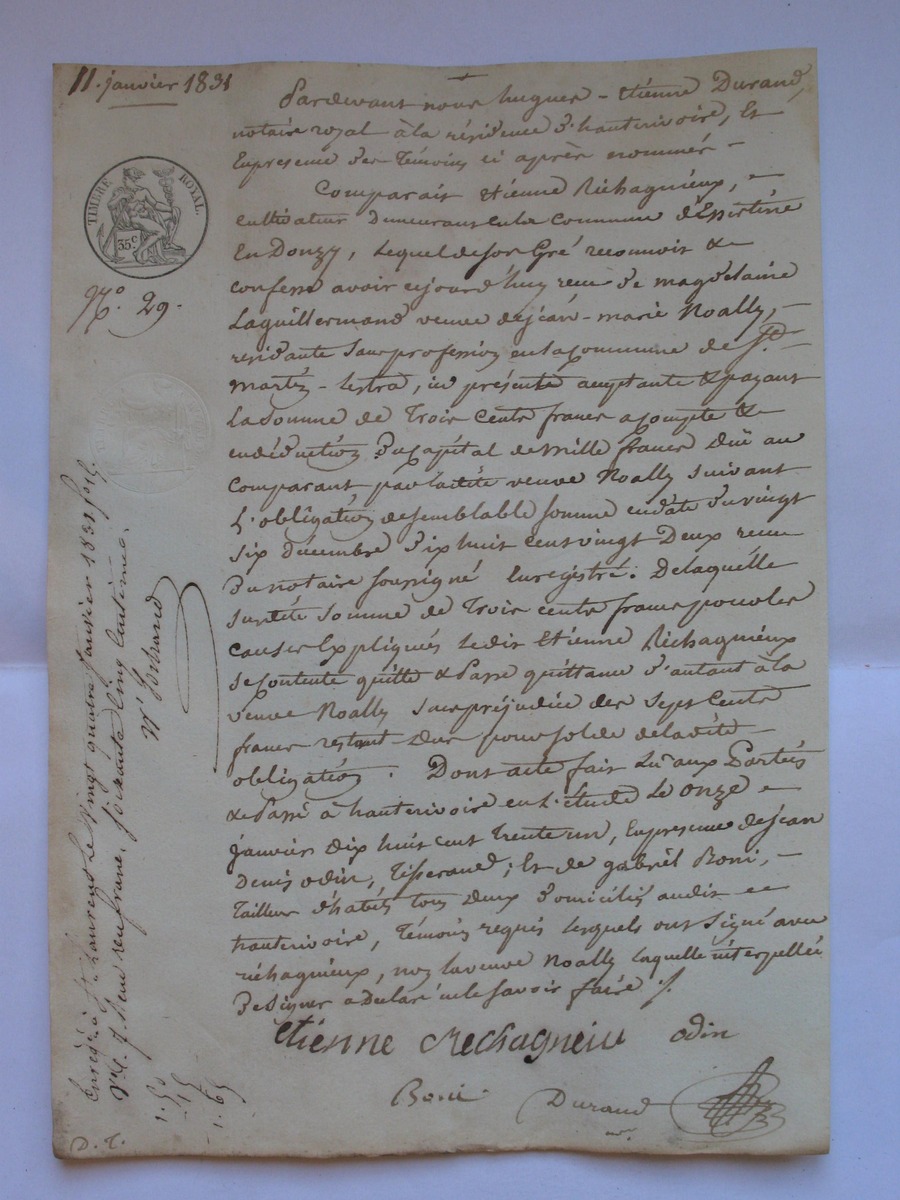 11. janvier 1831
TIMBRE ROYAL
35 c
N.o 29.
Pardevant nous hugues - Etienne Durand,
notaire royal à la résidence d'hauterivoire, Et
En presence des Témoins ci après nommés -
Comparait Etienne Richagnieux, -
cultivateur Demeurant En la Commune d'Essertine
En Donzy, Lequel de son Gré reconnoit &
confesse avoir cejourd'huy recu de magdelaine
Laguillermand veuve de jean-marie Noally, -
residante sans profession en la Commune de St
martin - Lestra, ici présente acceptante & payant
La Somme de Trois Cents francs acompte &
en déduction du Capital de mille francs dû au
Comparant par ladite veuve Noally Suivant
L'obligation de semblable Somme en date du vingt
Six décembre dix huit cent vingt Deux recu
Du notaire Soussigné Enregistré. De laquelle
Susdite Somme de Trois Cents francs pour les
Causes Expliqués Ledit Etienne Richagnieux
Se Contente quitte & Passe quittance d'autant à la
veuve Noally Sans préjudice des Sept Cents
francs restant dus pour solde de ladite
obligation. Dont acte fait Lu aux Parties
& Passé à hauterivoire en L'étude Le onze
janvier Dix huit cent Trente un, En presence de jean
Denis odin, Tisserand; Et de gabriel Boni, -
Tailleur d'habits tous deux domiciliés audit
hauterivoire, Témoins requis Lesquels ont Signé avec
richagnieux, non la veuve Noally laquelle interpellée
De Signer a Declaré ne le Savoir faire ./.
Etienne Rechagneiu odin
Boni Durand
Enregé à St Laurent Le Vingt quatre Janvier 1831 fo
Reçu un franc Soixante Cinq Centimes.
1.50
15
1.65
D. T.